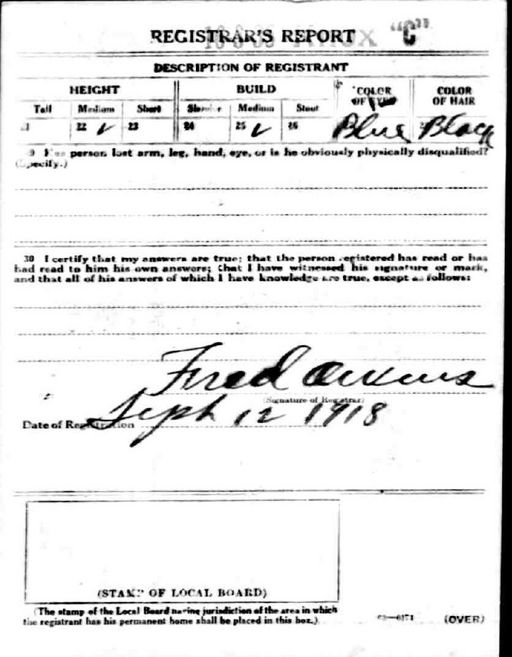 REGISTRAR'S REPORT "C"
DESCRIPTION OF REGISTRANT
HEIGHT BUILD COLOR OF EYES COLOR OF HAIR
Tall Medium Short Slender Medium Stout
21 22 ✓ 23 24 25 ✓ 26 Blue Black
29 Has person lost arm, leg, hand, eye, or is he obviously physically disqualified?
(Specify.)
30 I certify that my answers are true; that the person registered has read or has
had read to him his own answers; that I have witnessed his signature or mark,
and that all of his answers of which I have knowledge are true, except as follows:
Fred
(Signature of Registrar)
Date of Registration Sept 12 1918
(STAMP OF LOCAL BOARD)
(The stamp of the Local Board having jurisdiction of the area in which
the registrant has his permanent home shall be placed in this box.)
03—6171 (OVER)